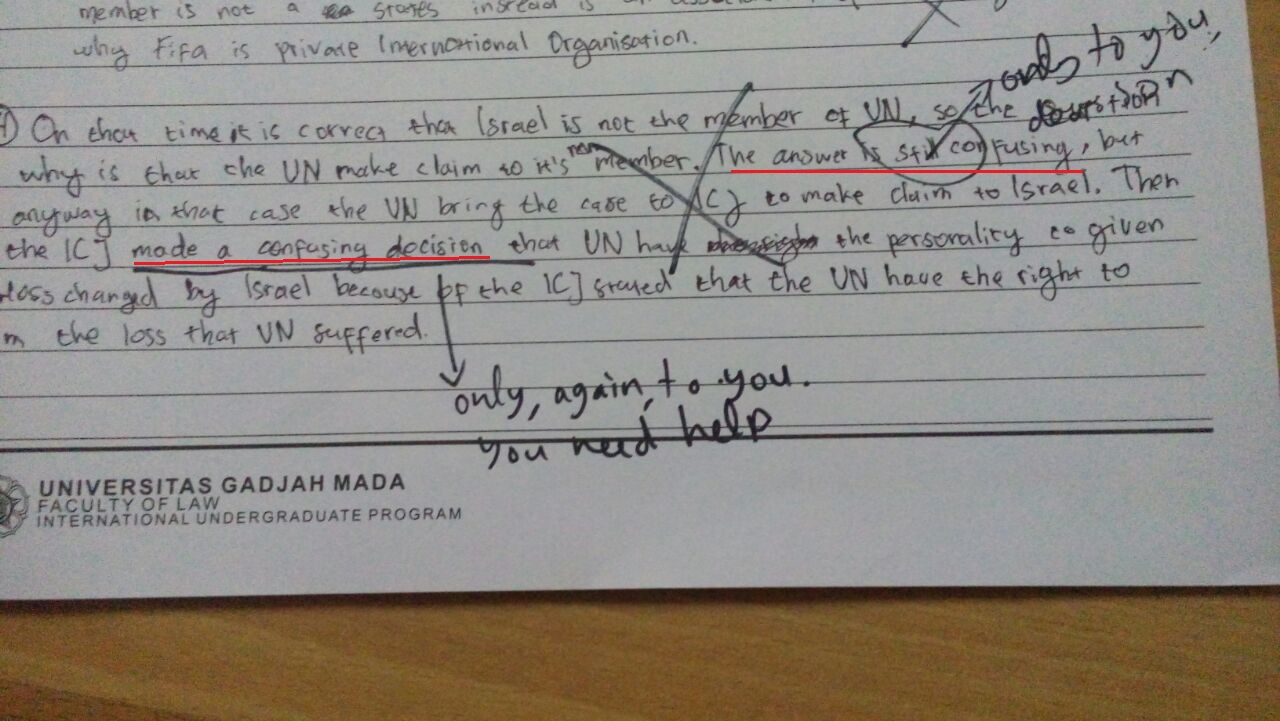 member is not a states instead is
why Fifa is private International Organisation.
only to you,
On that time it is correct that Israel is not the member of UN, so the question
why is that the UN make claim to it's non member. The answer is still confusing, but
anyway in that case the UN bring the case to ICJ to make claim to Israel. Then
the ICJ made a confusing decision that UN have the personality to given
loss changed by Israel because of the ICJ stated that the UN have the right to
the loss that UN suffered.
only, again, to you.
you need help
UNIVERSITAS GADJAH MADA
FACULTY OF LAW
INTERNATIONAL UNDERGRADUATE PROGRAM